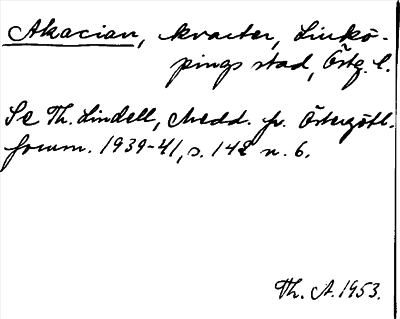 Akacian, kvarter, Linkö-
pings stad, Östg. l.
Se Th. Lindell, Medd. fr. Östergötl.
fornm. 1939-41, s. 142 n. 6.
Th. A. 1953.